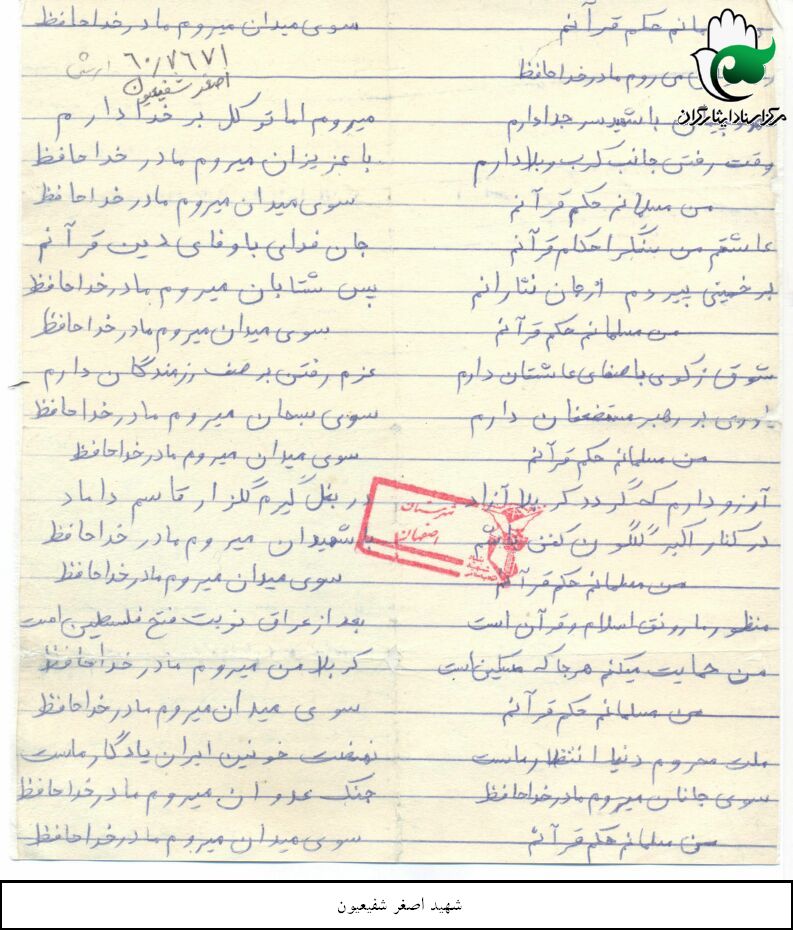 مسلمانم حکم قرآنم سوی میدان میروم مادر خداحافظ
می روم مادر خداحافظ
۶۰/۷۶۷۱ ارتش
اصغر شفیعیون
مرکز اسناد ایثارگران
با شهید سر جدا دارم میروم اما توکل بر خدا دارم
وقت رفتن جانب کرب و بلا دارم با عزیزان میروم مادر خداحافظ
من مسلمانم حکم قرآنم سوی میدان میروم مادر خداحافظ
عاشقم من سنگر احکام قرآنم جان فدای با وفای دین قرآنم
بر خمینی پیر دم از جان نثارانم پس شتابان میروم مادر خداحافظ
من مسلمانم حکم قرآنم سوی میدان میروم مادر خداحافظ
شوق زکوی با صفای عاشقان دارم عزم رفتن بر صف رزمندگان دارم
یاوری بر رهبر مستضعفان دارم سوی سبحان میروم مادر خداحافظ
من مسلمانم حکم قرآنم سوی میدان میروم مادر خداحافظ
آرزو دارم که گردد کربلا آزاد در بغل گیرم گلزار قاسم داماد
در کنار اکبر گلگون کفن با شهیدان میروم مادر خداحافظ
شهرستان
اصفهان
من مسلمانم حکم قرآنم سوی میدان میروم مادر خداحافظ
منظور ما رونق اسلام و قرآن است بعد از عراق نوبت فتح فلسطین است
من حمایت میکنم هر جا که مسکین است کربلا من میروم مادر خداحافظ
من مسلمانم حکم قرآنم سوی میدان میروم مادر خداحافظ
ملت محروم دنیا انتظار ماست نهضت خونین ایران یادگار ماست
سوی جانان میروم مادر خداحافظ جنگ عدوان میروم مادر خداحافظ
من مسلمانم حکم قرآنم سوی میدان میروم مادر خداحافظ
شهید اصغر شفیعیون